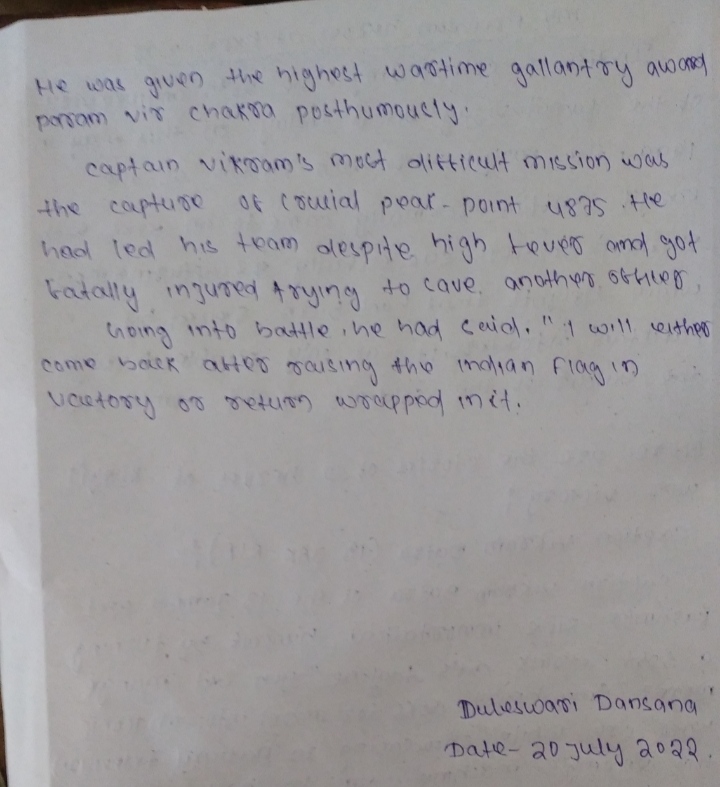 He was given the highest wartime gallantry award
param vir chakra posthumously.
captain vikram's most difficult mission was
the capture of crucial pear-point 4875. He
had led his team despite high fever and got
fatally injured trying to cave another officer.
Going into battle, he had said. "I will either
come back after raising the indian flag in
victory or return wrapped in it.
Duleswari Dansana
Date- 20 July 2022.